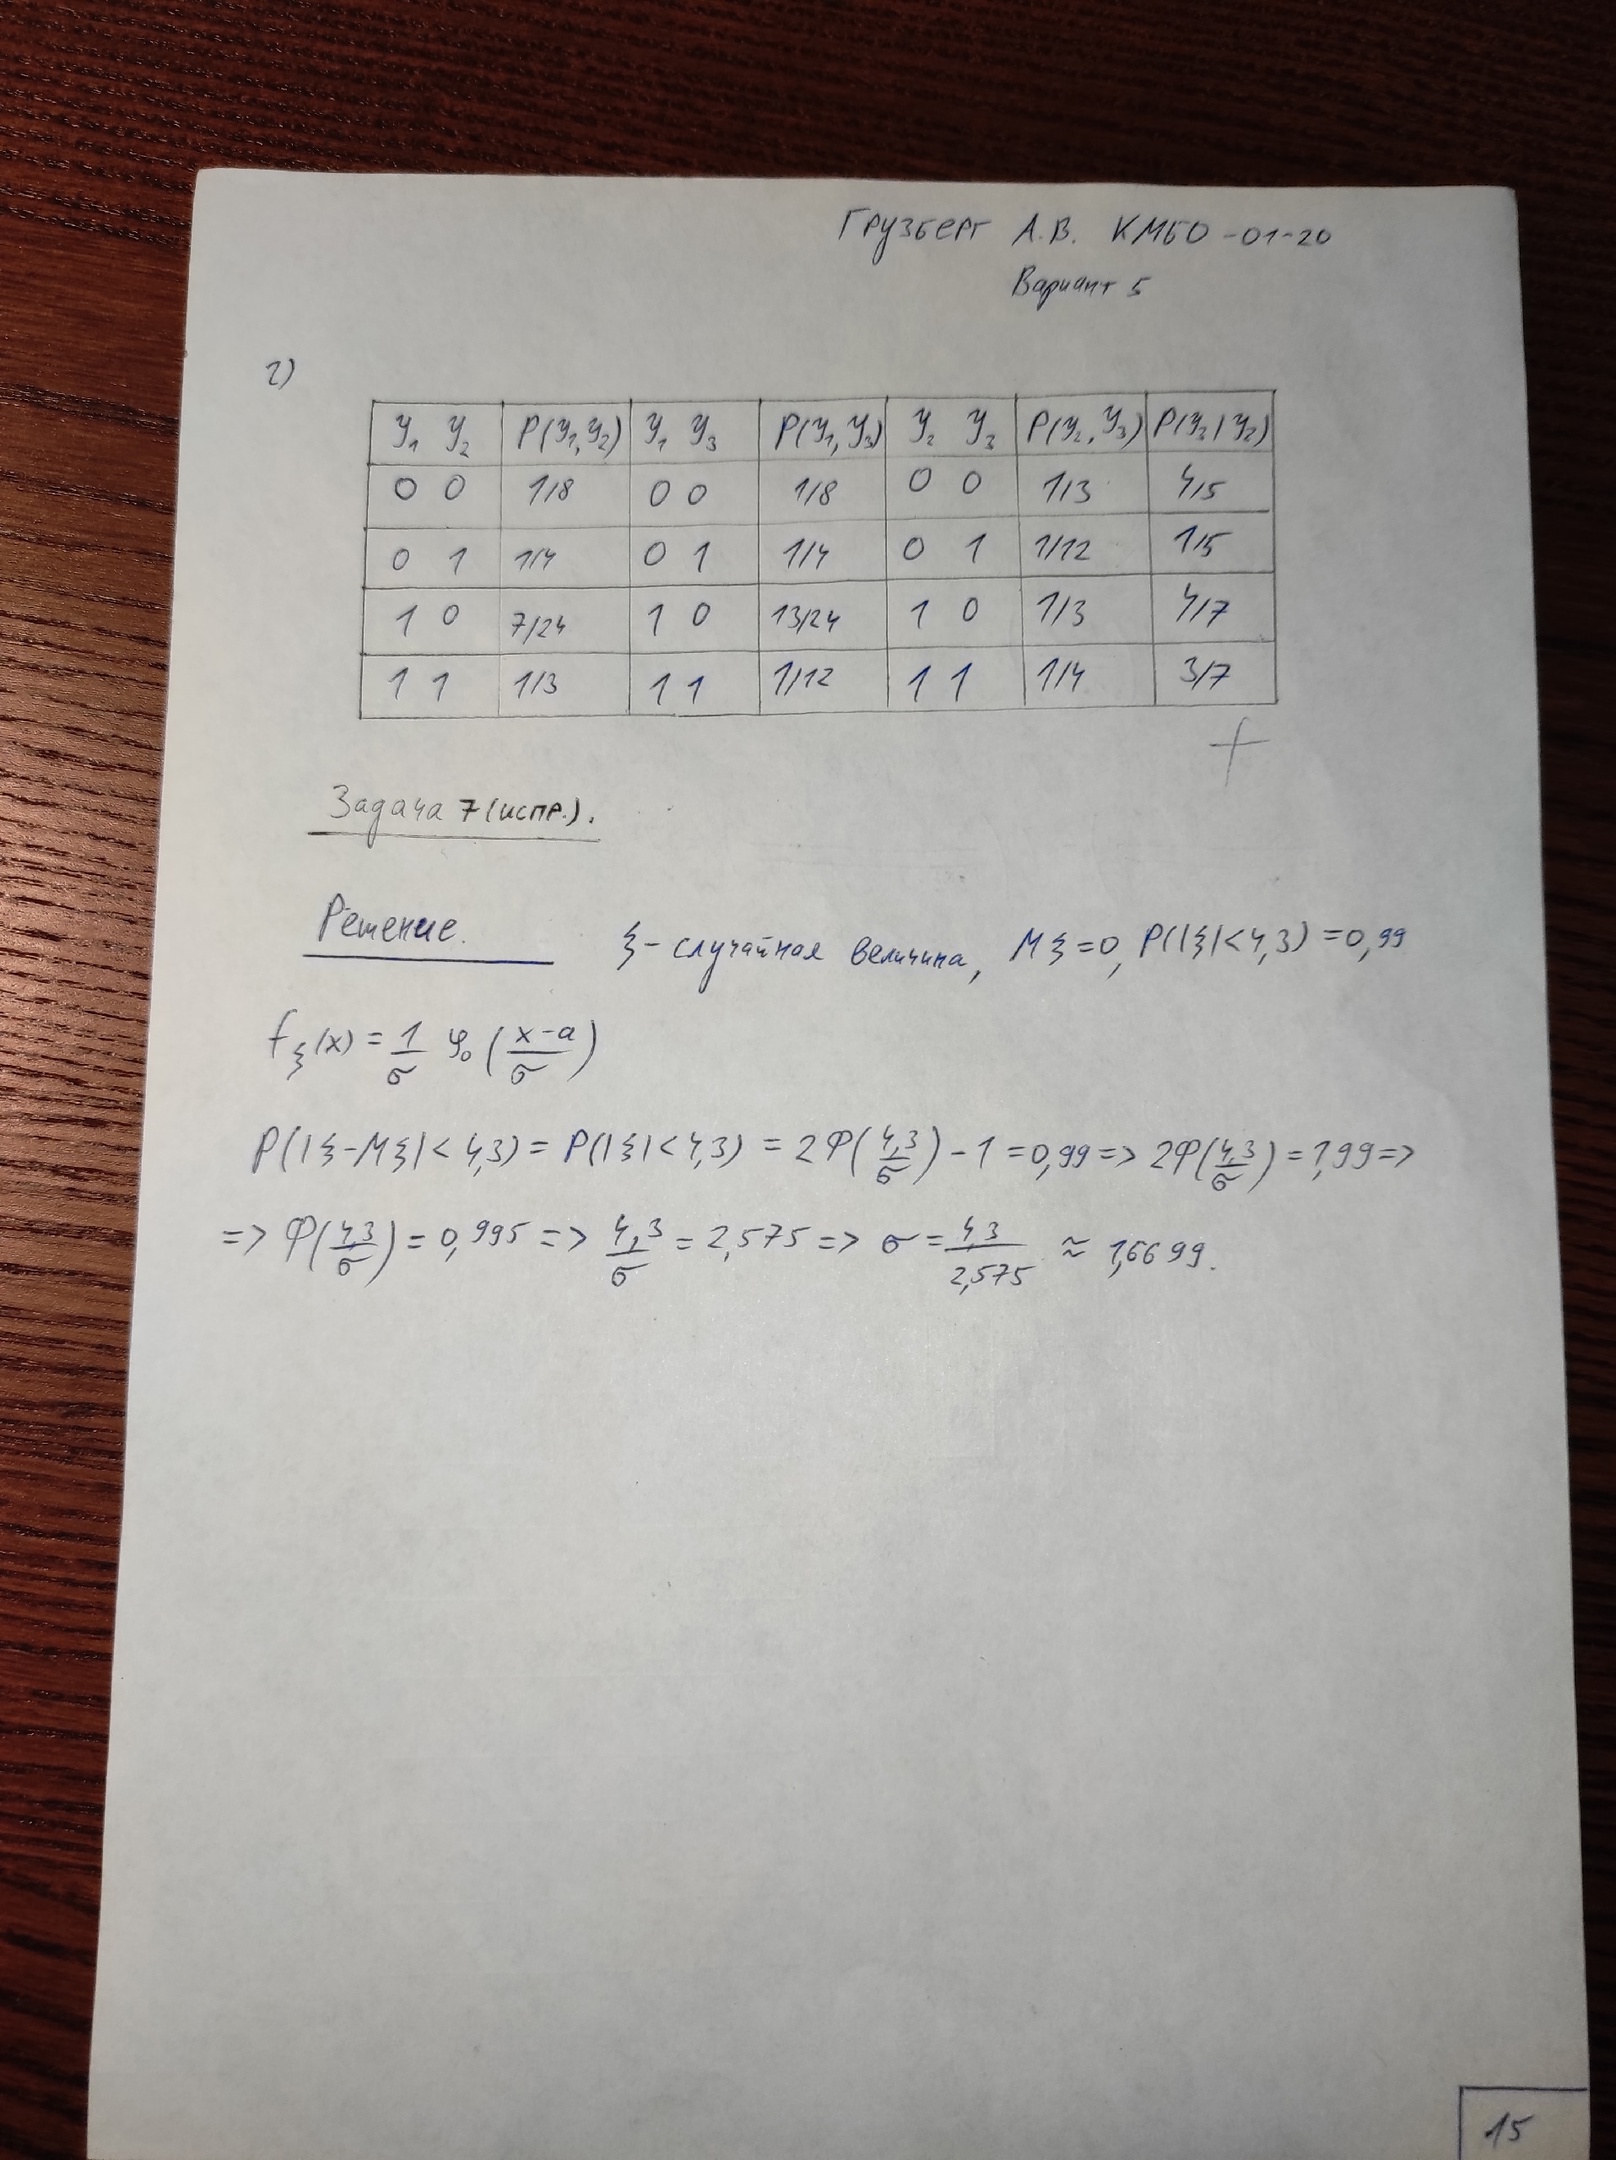 Грузберг А.В. КМБО-01-20
Вариант 5
г)
y₁ y₂ P(y₁,y₂) y₁ y₃ P(y₁,y₃) y₂ y₃ P(y₂,y₃) P(y₃|y₂)
0 0 1/8 0 0 1/8 0 0 1/3 4/5
0 1 1/4 0 1 1/4 0 1 1/12 1/5
1 0 7/24 1 0 13/24 1 0 1/3 4/7
1 1 1/3 1 1 1/12 1 1 1/4 3/7
+
Задача 7 (испр.).
Решение. ξ - случайная величина, Mξ=0, P(|ξ|<4,3)=0,99
f_ξ(x) = 1/σ φ₀((x-a)/σ)
P(|ξ-Mξ|<4,3) = P(|ξ|<4,3) = 2Φ(4,3/σ) - 1 = 0,99 => 2Φ(4,3/σ) = 1,99 =>
=> Φ(4,3/σ) = 0,995 => 4,3/σ = 2,575 => σ = 4,3/2,575 ≈ 1,6699.
15